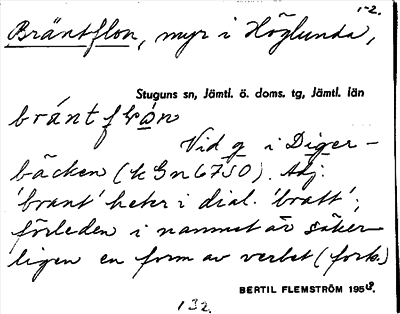 1-2.
Bräntflon, myr i Höglunda,
Stuguns sn, Jämtl. ö. doms. tg, Jämtl. län
brántflo̲n
Vid g i Diger-
bäcken (k Gn 6750). Adj.
'brant' heter i dial. 'bratt';
förleden i namnet är säker-
ligen en form av verbet (forts.)
BERTIL FLEMSTRÖM 1958.
132.